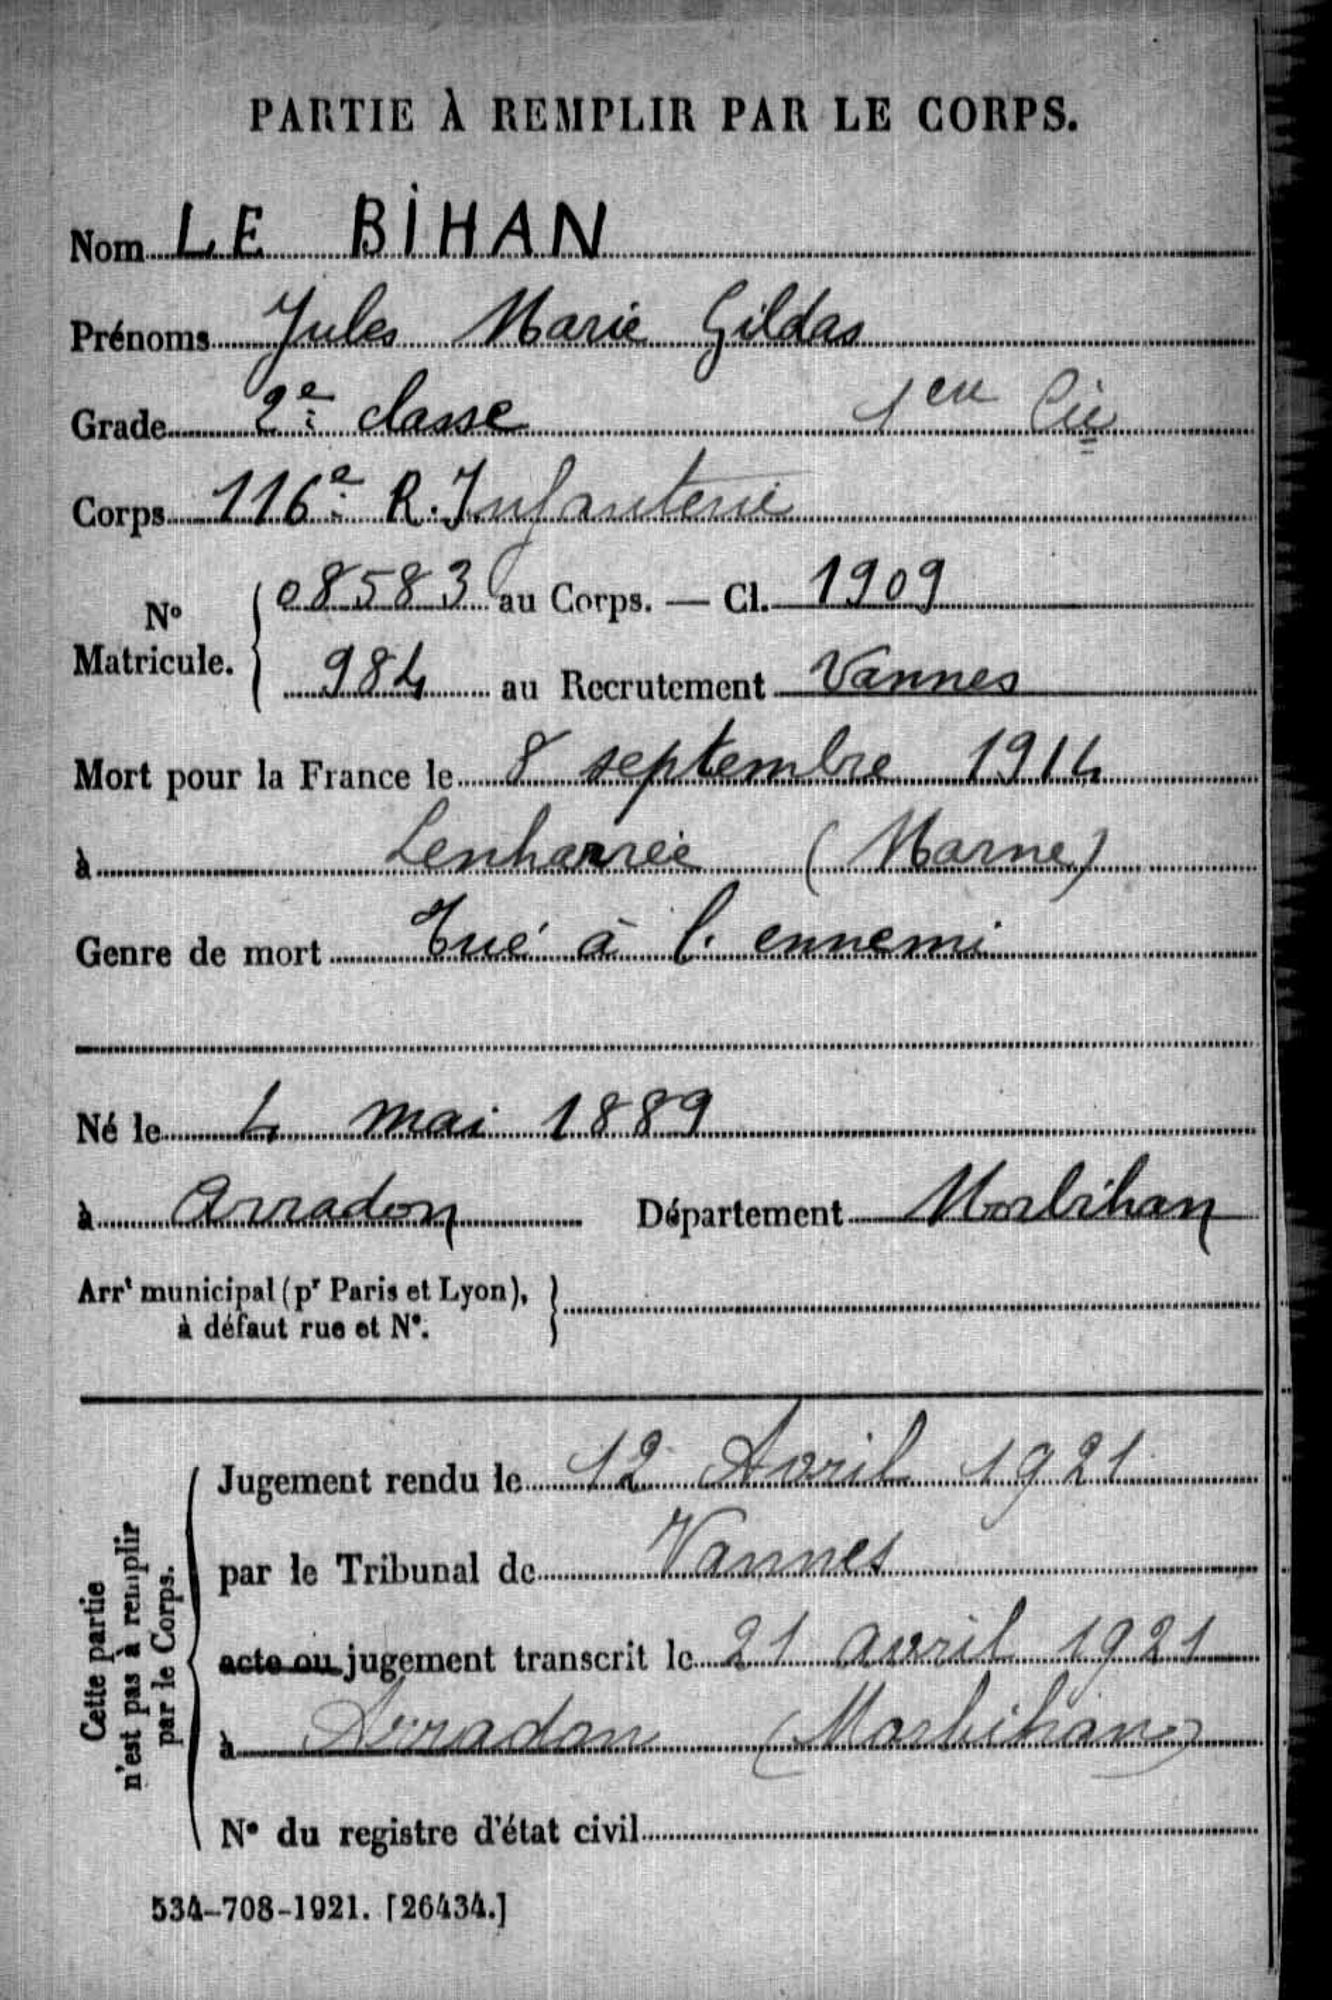 PARTIE À REMPLIR PAR LE CORPS.
Nom LE BIHAN
Prénoms Jules Marie Gildas
Grade 2e classe 1ere Cie
Corps 116e R. Infanterie
N° Matricule. { 08583 au Corps. — Cl. 1909
984 au Recrutement Vannes
Mort pour la France le 8 septembre 1914
à Lenharrée (Marne)
Genre de mort Tué à l'ennemi
Né le 4 mai 1889
à Arradon Département Morbihan
Arrt municipal (pr Paris et Lyon), }
à défaut rue et N°.
Cette partie
n'est pas à remplir
par le Corps.
Jugement rendu le 12 Avril 1921
par le Tribunal de Vannes
acte ou jugement transcrit le 21 avril 1921
à Arradon (Morbihan)
N° du registre d'état civil
534-708-1921. [26434.]